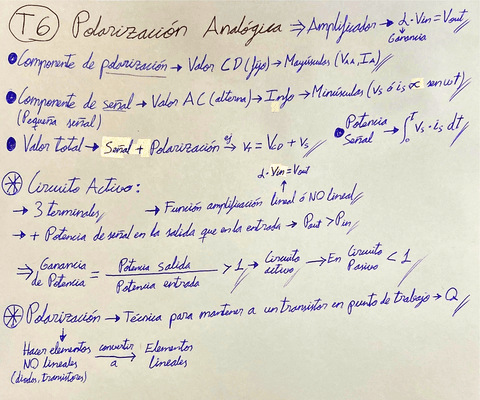 T6 Polarización Analógica ⇒ Amplificador → α·Vin = Vout
Ganancia
Componente de polarización → Valor CD (fijo) → Mayúsculas (VAA, IA)
Componente de señal → Valor AC (alterna) → Info → Minúsculas (vs ó is ∝ sen ωt)
(Pequeña señal)
Valor total → Señal + Polarización ej→ vT = VCD + vs
Potencia Señal → ∫₀ᵀ vs · is dt
α·Vin = Vout
Circuito Activo:
→ 3 terminales → Función amplificación lineal ó NO lineal
→ + Potencia de señal en la salida que en la entrada → Pout > Pin
⇒ Ganancia de Potencia = Potencia salida / Potencia entrada > 1 → Circuito activo → En Circuito Pasivo < 1
Polarización → Técnica para mantener a un transistor en punto de trabajo → Q
Hacer elementos NO lineales convertir a → Elementos lineales
(diodos, transistores)